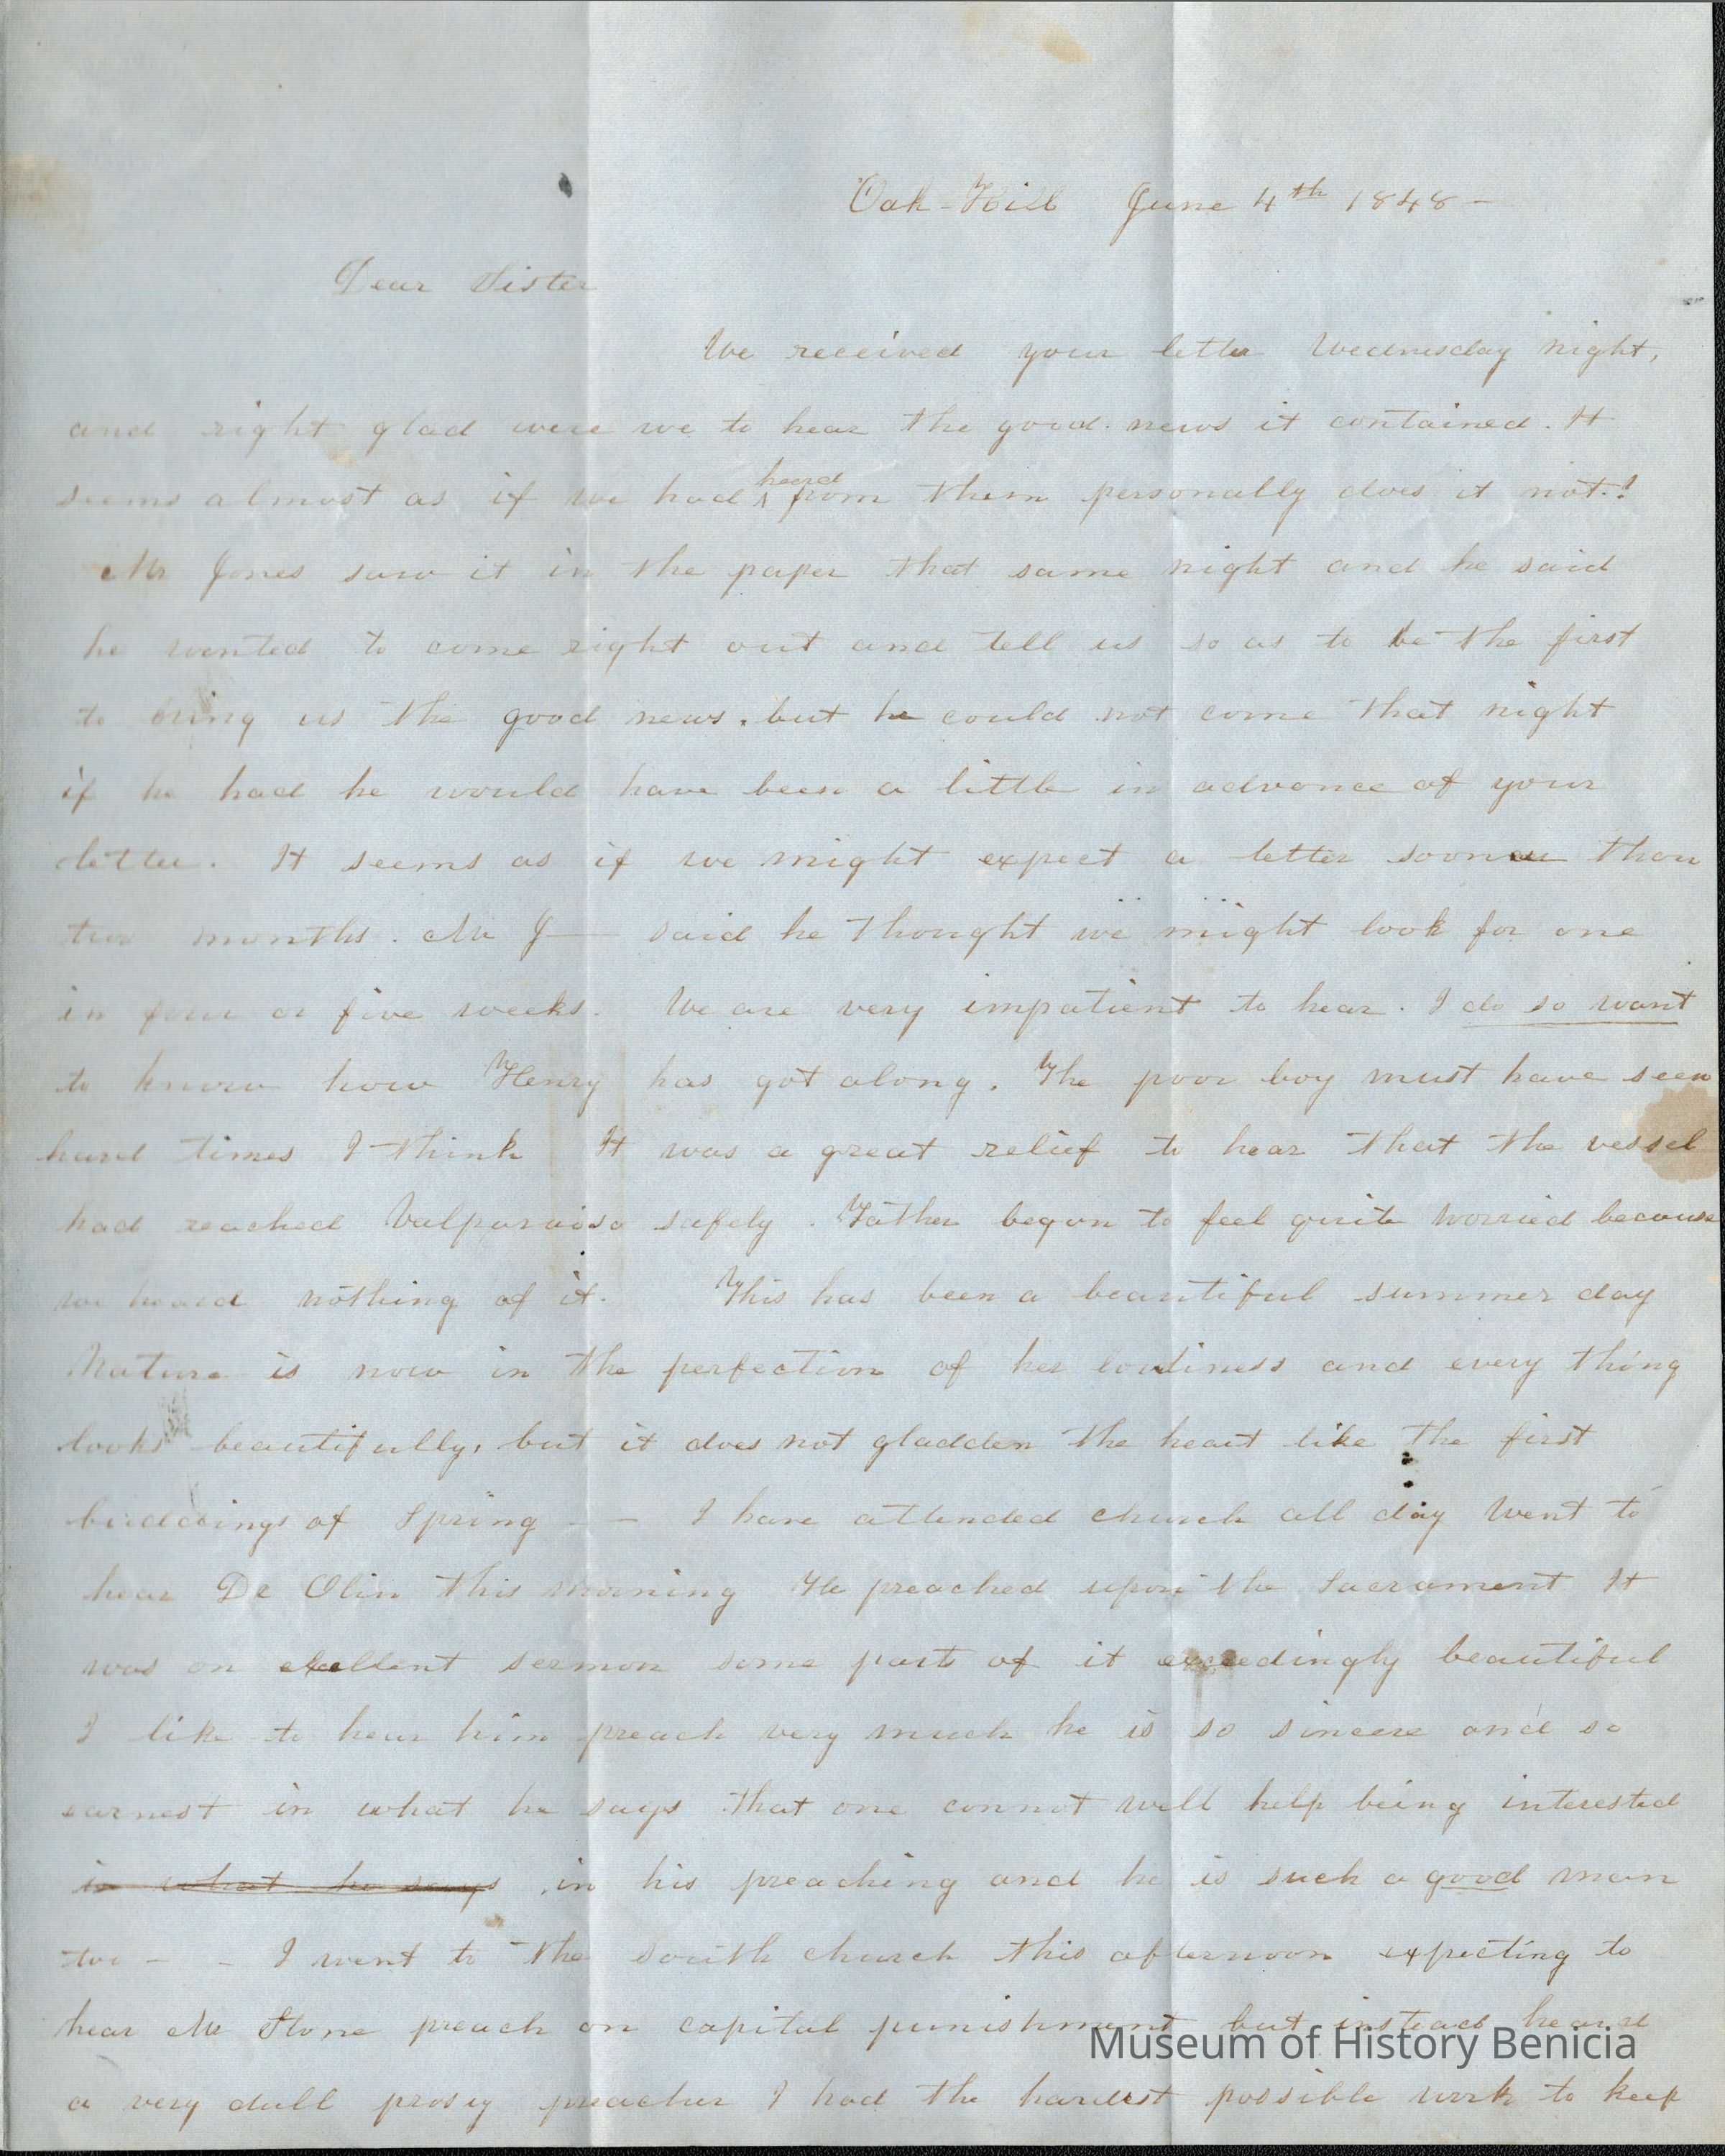 Oak-Hill June 4th 1848 -
Dear Sister
We received your letter Wednesday night,
and right glad were we to hear the good news it contained. It
seems almost as if we had heard from them personally does it not.!
Mr Jones saw it in the paper that same night and he said
he wanted to come right out and tell us so as to be the first
to bring us the good news. but he could not come that night
if he had he would have been a little in advance of your
letter. It seems as if we might expect a letter sooner than
two months. Mr J— said he thought we might look for one
in four or five weeks. We are very impatient to hear. I do so want
to know how Henry has got along. The poor boy must have seen
hard times I think It was a great relief to hear that the vessel
had reached Valparaiso safely. Father began to feel quite worried because
we heard nothing of it. This has been a beautiful summer day
Nature is now in the perfection of her loveliness and every thing
looks beautifully, but it does not gladden the heart like the first
buddings of Spring - - I have attended church all day Went to
hear Dr Olin this morning He preached upon the Sacrament It
was an excellent sermon some parts of it exceedingly beautiful
I like to hear him preach very much he is so sincere and so
earnest in what he says that one cannot well help being interested
in what he says in his preaching and he is such a good man
too - - I went to the South church this afternoon expecting to
hear Mr Stone preach on capital punishment but instead heard
a very dull prosy preacher I had the hardest possible work to keep
Museum of History Benicia